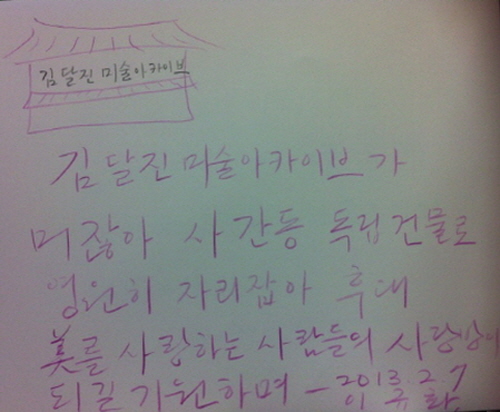 김달진미술아카이브
김달진미술아카이브가
머잖아 사간동 독립건물로
영원히 자리잡아 후대
美를 사랑하는 사람들의 사랑방이
되길 기원하며 - 2013. 2. 7